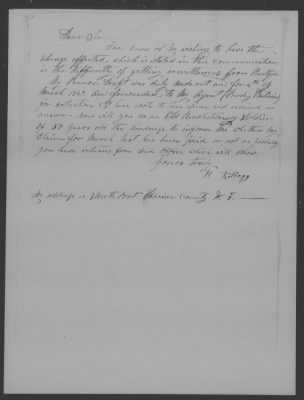 Dear Sir
One cause of my wishing to have this
change effected, which is stated in this communication,
is the difficulty of getting remittances from
My Pension Draft was duly made out and for 4th of
March 1842 & forwarded to My Agent
for collection & I have wrote to him and received no
answer now will you do an Old Revolutionary Soldier
of 87 years old the kindness to inform me whether my
Claim for March last has been paid or not as probably
you have returns from said office which will show
yours truly
H Kellogg
My address is North Port County N. Y.